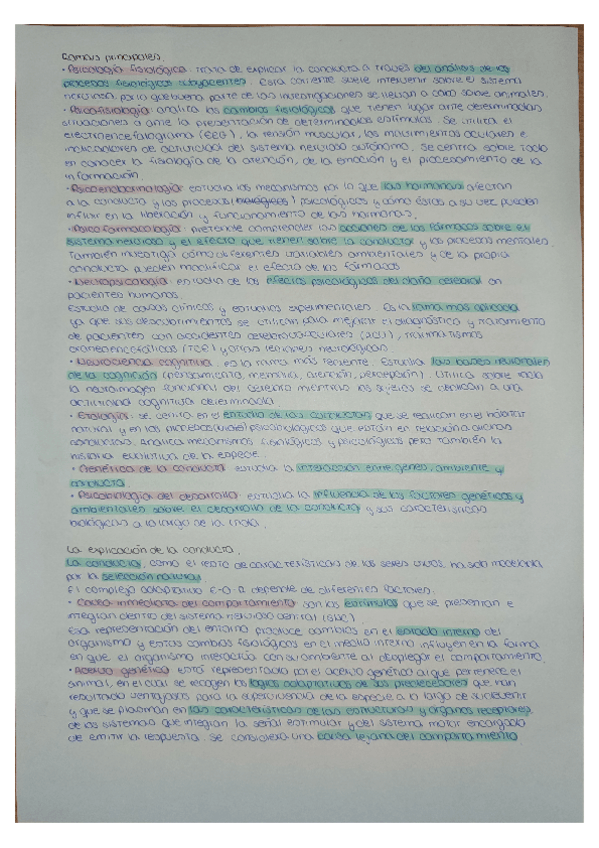 Ramas principales.
· Psicología fisiológica: trata de explicar la conducta a través del análisis de los
procesos fisiológicos subyacentes. Esta corriente suele intervenir sobre el sistema
nervioso, por lo que buena parte de las investigaciones se llevan a cabo sobre animales.
· Psicofisiología: analiza los cambios fisiológicos que tienen lugar ante determinadas
situaciones o ante la presentación de determinados estímulos. Se utiliza el
electroencefalograma (EEG), la tensión muscular, los movimientos oculares e
indicadores de actividad del sistema nervioso autónomo. Se centra sobre todo
en conocer la fisiología de la atención, de la emoción y el procesamiento de la
información.
· Psicoendocrinología: estudia los mecanismos por lo que las hormonas afectan
a la conducta y los procesos psicológicos y cómo éstos a su vez pueden
influir en la liberación y funcionamiento de las hormonas.
· Psicofarmacología: pretende comprender las acciones de los fármacos sobre el
sistema nervioso y el efecto que tienen sobre la conducta y los procesos mentales.
También investiga cómo diferentes variables ambientales y de la propia
conducta pueden modificar el efecto de los fármacos
· Neuropsicología: estudia de los efectos psicológicos del daño cerebral en
pacientes humanos.
Estudio de casos clínicos y estudios experimentales. Es la rama más aplicada
ya que sus descubrimientos se utilizan para mejorar el diagnóstico y tratamiento
de pacientes con accidentes cerebrovasculares (ACV), traumatismos
craneoencefálicos (TCE) y otras lesiones neurológicas
· Neurociencia cognitiva: es la rama más reciente. Estudia las bases neuronales
de la cognición (pensamiento, memoria, atención, percepción). Utiliza sobre todo
la neuroimagen funcional del cerebro mientras los sujetos se dedican a una
actividad cognitiva determinada
· Etología: se centra en el estudio de las conductas que se realizan en el hábitat
natural y en los procesos psicobiológicos que están en relación a dichas
conductas. Analiza mecanismos fisiológicos y psicológicos pero también la
historia evolutiva de la especie.
· Genética de la conducta: estudia la interacción entre genes, ambiente y
conducta.
· Psicobiología del desarrollo: estudia la influencia de los factores genéticos y
ambientales sobre el desarrollo de la conducta y sus características
biológicas a lo largo de la vida.
La explicación de la conducta.
La conducta, como el resto de características de los seres vivos, ha sido modelada
por la selección natural
El complejo adaptativo E-O-R depende de diferentes factores:
· Causa inmediata del comportamiento: son los estímulos que se presentan e
integran dentro del sistema nervioso central (SNC).
Esa representación del entorno produce cambios en el estado interno del
organismo y estos cambios fisiológicos en el medio interno influyen en la forma
en que el organismo interactúa con su ambiente al desplegar el comportamiento.
· Acervo genético: está representado por el acervo genético al que pertenece el
animal, en el cual se recogen los logros adaptativos de sus predecesores que han
resultado ventajosos para la supervivencia de la especie a lo largo de su devenir
y que se plasman en las características de las estructuras y órganos receptores,
de los sistemas que integran la señal estimular y del sistema motor encargado
de emitir la respuesta. Se considera una causa lejana del comportamiento